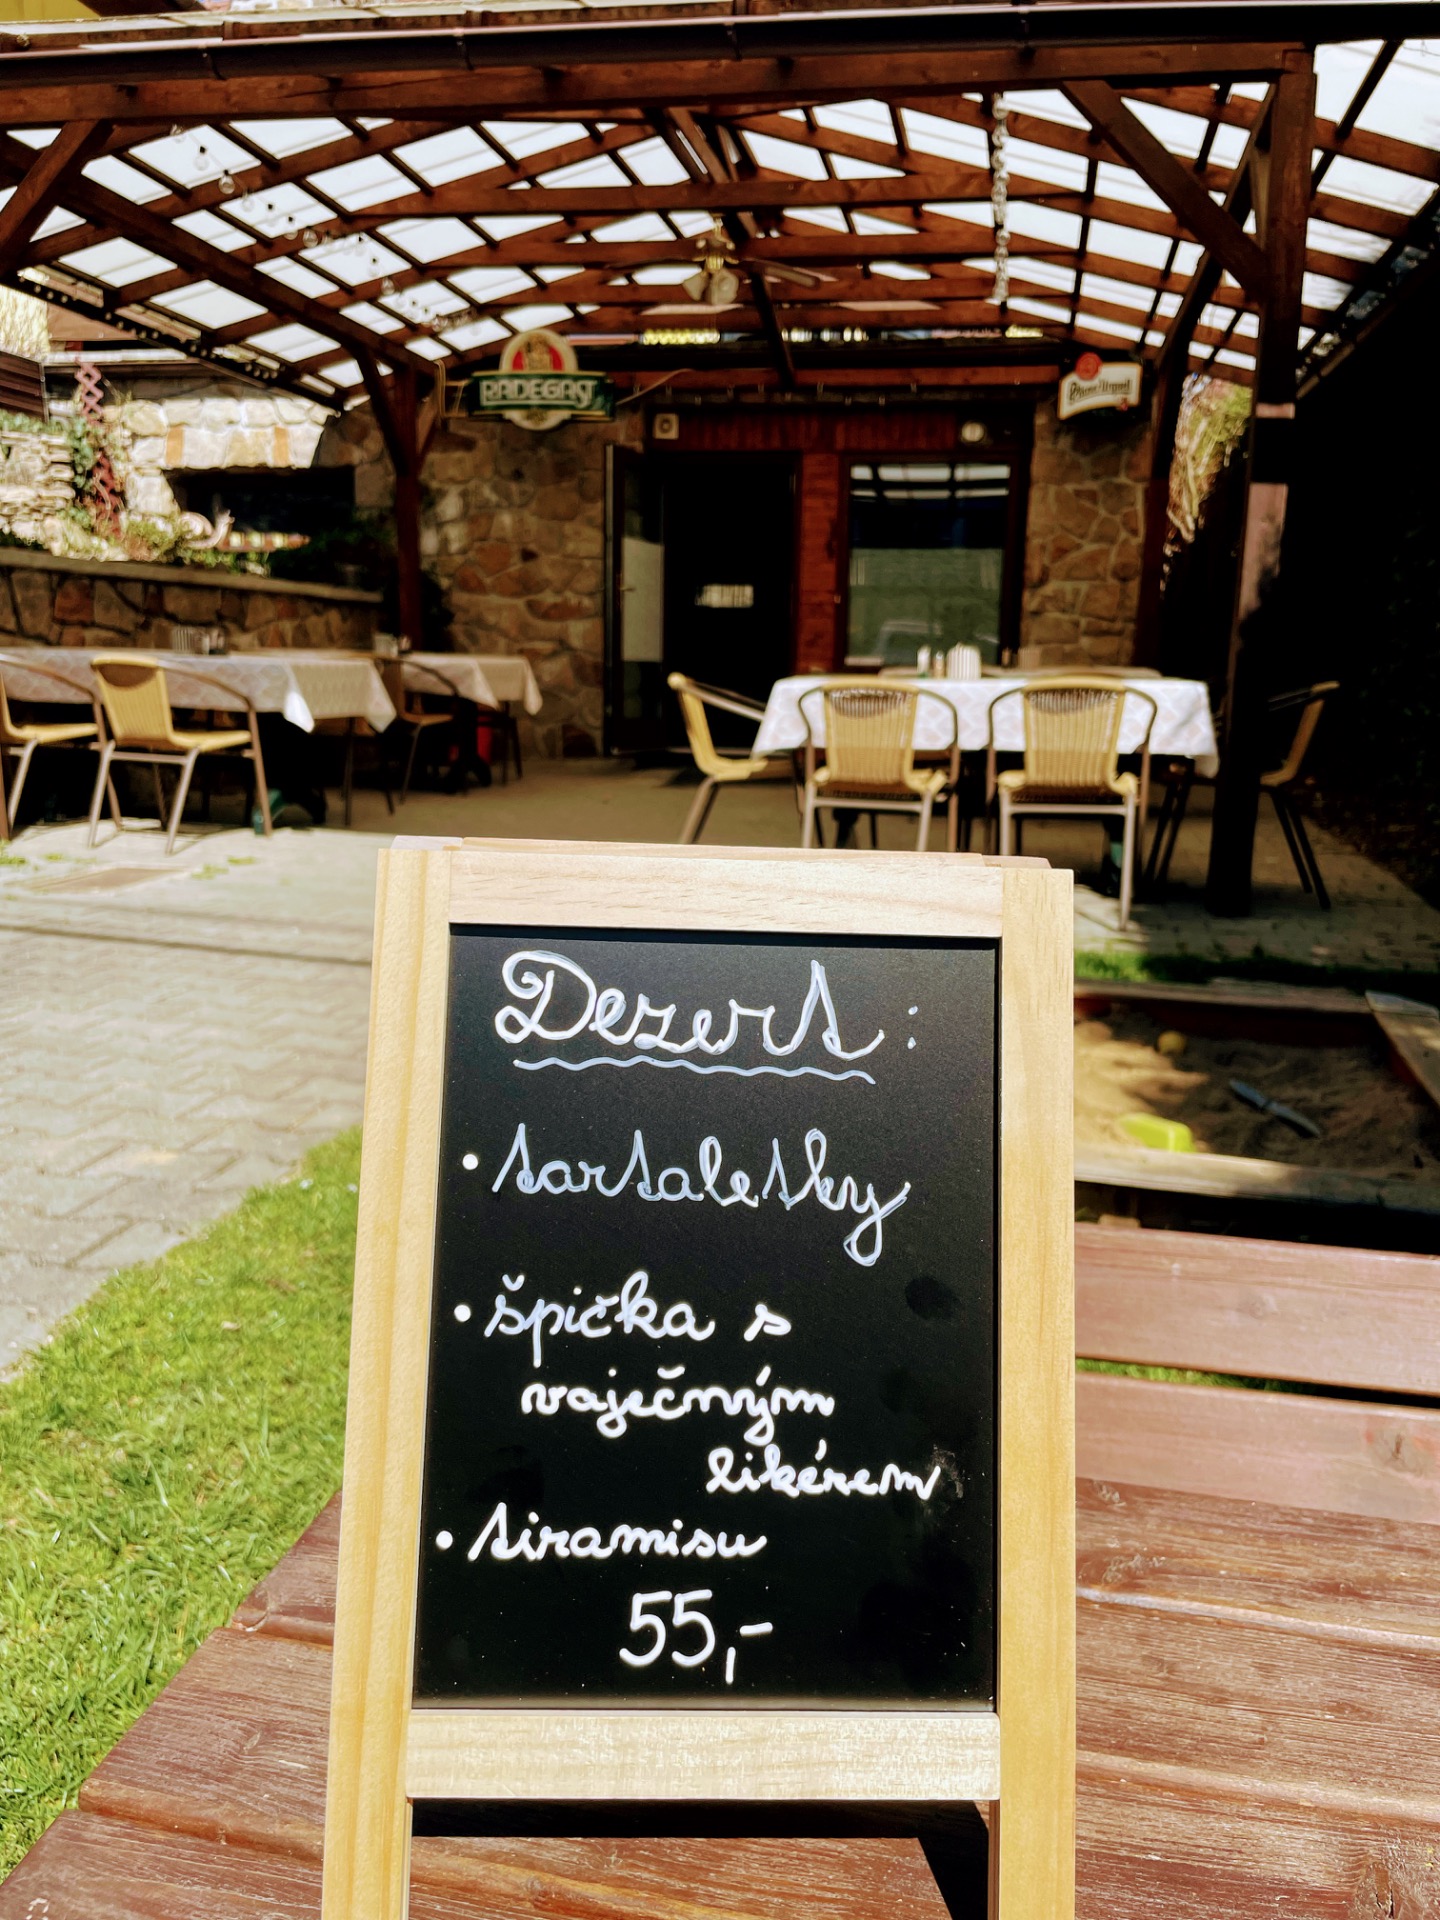 RADEGAST
Pilsner Urquell
Dezert:
• tartaletky
• špička s
vaječným
likérem
• tiramisu
55,-